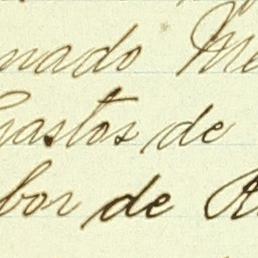 nado Me
Gastos de
bor de R